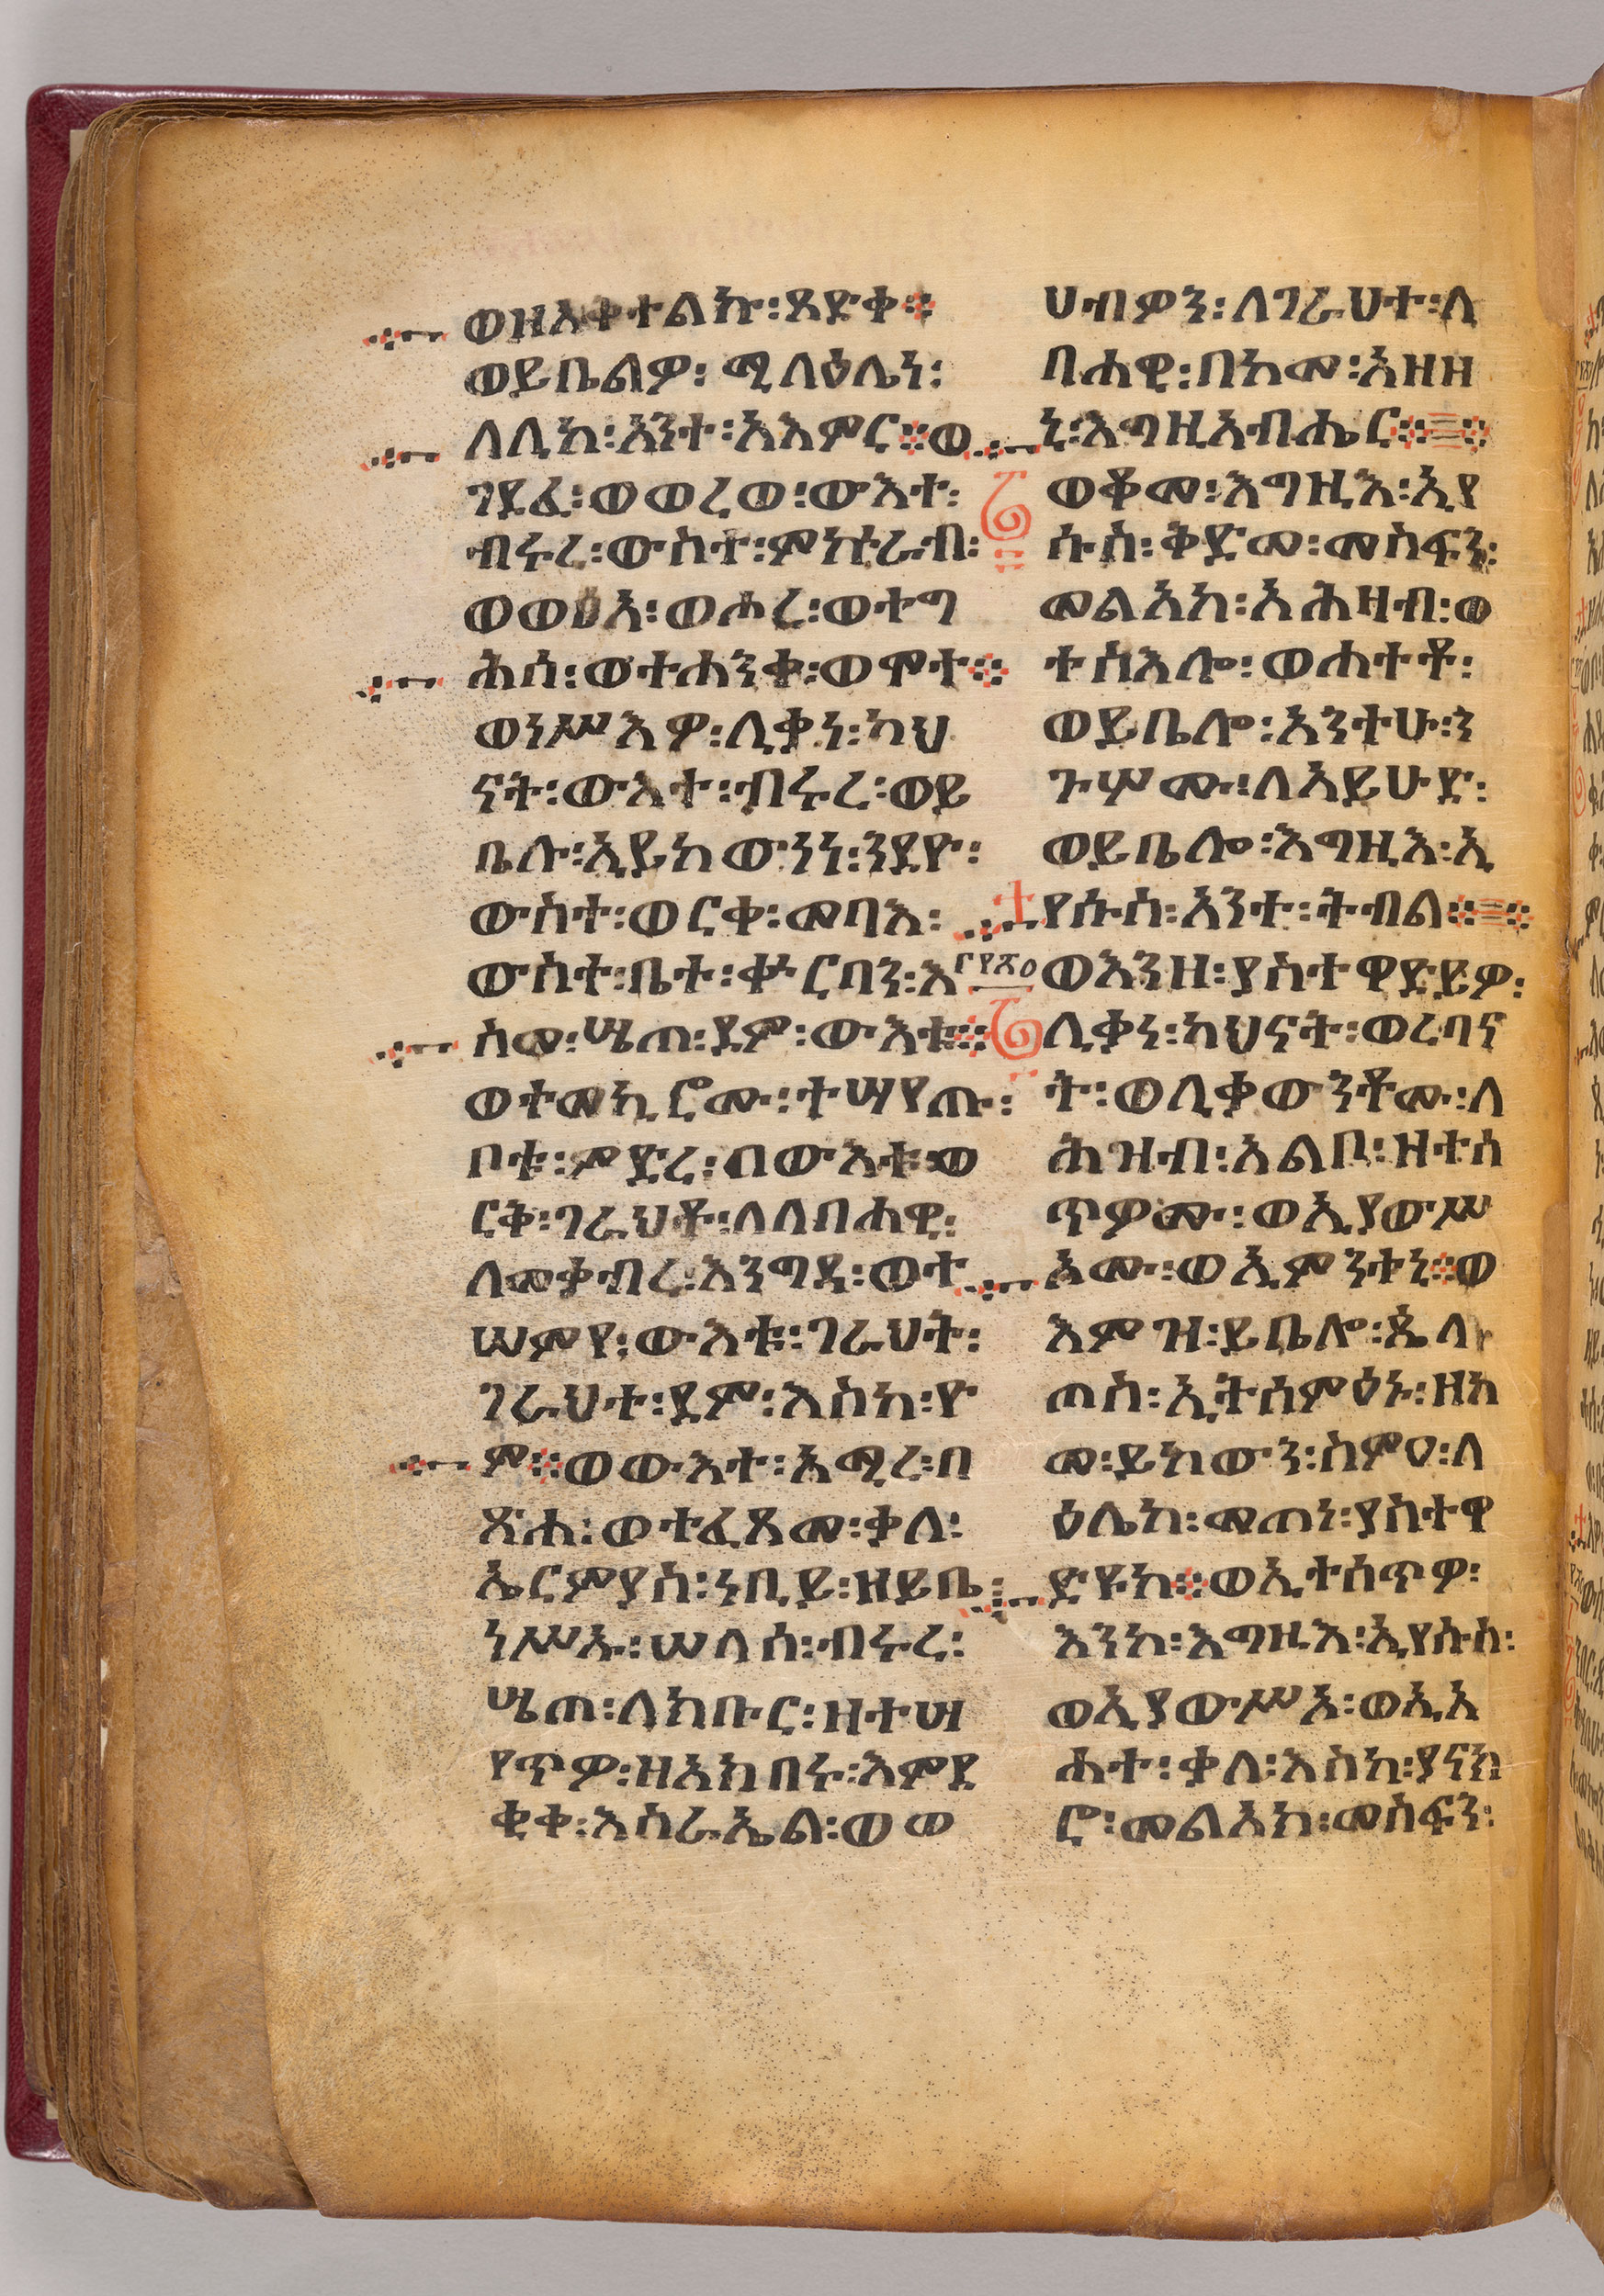 ወዘአቀተልኩ፡ጻድቀ፨
ወይቤልዎ፡ሚላዕሌነ፡
ለሊከ፡አንተ፡አእምር፨ወ
ገደፈ፡ወወረወ፡ውእተ፡
ብሩረ፡ውስተ፡ምኵራብ፡
ወወፅአ፡ወሖረ፡ወተግ
ሕሰ፡ወተሐንቀ፡ወሞተ፨
ወነሥእዎ፡ሊቃነ፡ካህ
ናት፡ውእተ፡ብሩረ፡ወይ
ቤሉ፡ኢይከውንነ፡ንደዮ፡
ውስተ፡ወርቀ፡መባእ፡
ውስተ፡ቤተ፡ቍርባን፡እ
ስመ፡ሤጠ፡ደም፡ውእቱ፨
ወተመኪሮሙ፡ተሣየጡ፡
ቦቱ፡ምድረ፡በውእቱ፡ወ
ርቅ፡ገራህቶ፡ለለብሐዊ፡
ለመቃብረ፡እንግዳ፡ወተ
ሠምየ፡ውእቱ፡ገራህት፡
ገራህተ፡ደም፡እስከ፡ዮ
ም፨ወውእተ፡አሚረ፡በ
ጽሐ፡ወተፈጸመ፡ቃለ፡
ኤርምያስ፡ነቢይ፡ዘይቤ፡
ነሥኡ፡ሠላሰ፡ብሩረ፡
ሤጠ፡ለክቡር፡ዘተሣ
የጥዎ፡ዘአክበሩ፡እምደ
ቂቀ፡እስራኤል፡ወወ
ሀብዎን፡ለገራህተ፡ለ
ብሐዊ፡በከመ፡አዘዘ
ኒ፡እግዚአብሔር፨፨
ወቆመ፡እግዚእ፡ኢየ
ሱስ፡ቅድመ፡መስፍን፡
መልአከ፡አሕዛብ፡ወ
ተስእሎ፡ወሐተቶ፡
ወይቤሎ፡አንተሁ፡ን
ጉሦሙ፡ለአይሁድ፡
ወይቤሎ፡እግዚእ፡ኢ
የሱስ፡አንተ፡ትብል፨፨
ወእንዘ፡ያስተዋድይዎ፡
ሊቃነ፡ካህናት፡ወረባና
ት፡ወሊቃውንቶሙ፡ለ
ሕዝብ፡አልቦ፡ዝተሰ
ጥዎሙ፡ወኢያውሥ
አሙ፡ወኢምንተኒ፨ወ
እምዝ፡ይቤሎ፡ጲላ
ጦስ፡ኢትሰምዕኑ፡ዘከ
መ፡ይከውን፡ስምዐ፡ላ
ዕሌከ፡መጠነ፡ያስተዋ
ድዩከ፨ወኢተሰጥዎ፡
እንከ፡እግዚእ፡ኢየሱስ፡
ወኢያውሥአ፡ወኢአ
ሐተ፡ቃለ፡እስከ፡ያናክ
ሮ፡መልአከ፡መስፍን፡